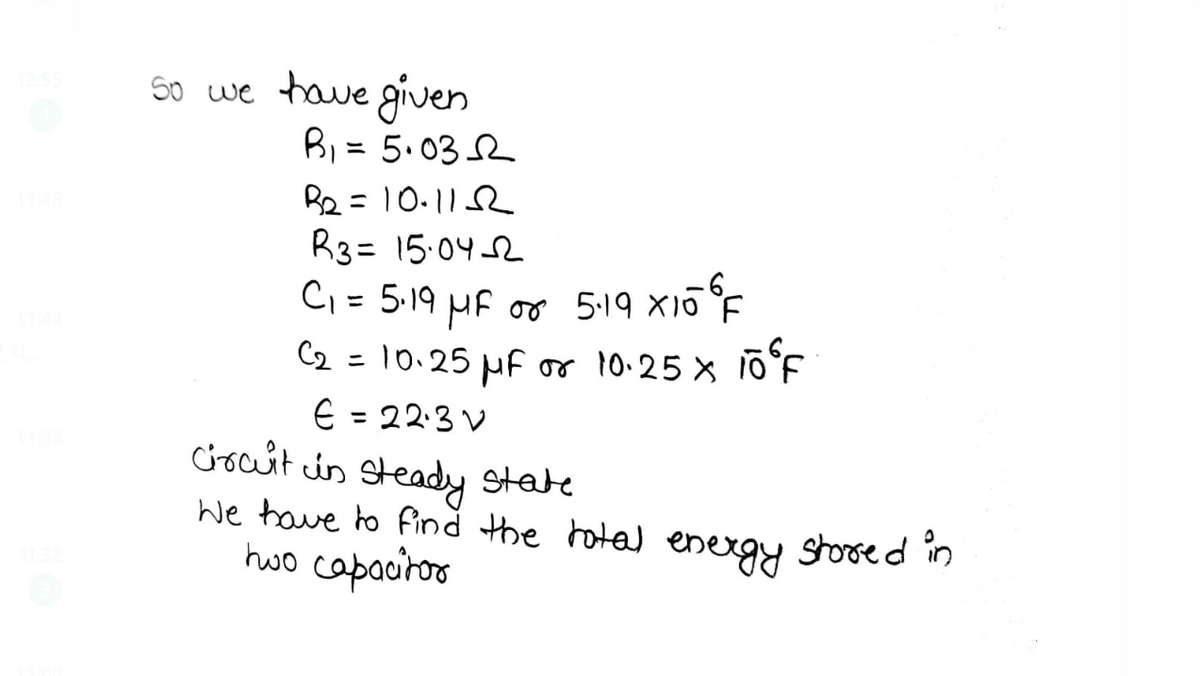 12:55
So we have given
R1 = 5.03 Ω
11:48
R2 = 10.11 Ω
R3 = 15.04 Ω
C1 = 5.19 μF or 5.19 ×10⁻⁶F
11:44
C2 = 10.25 μF or 10.25 × 10⁻⁶F
ϵ = 22.3 V
11:33
Circuit in steady state
We have to find the total energy stored in
11:32
two capacitor
3
11:09